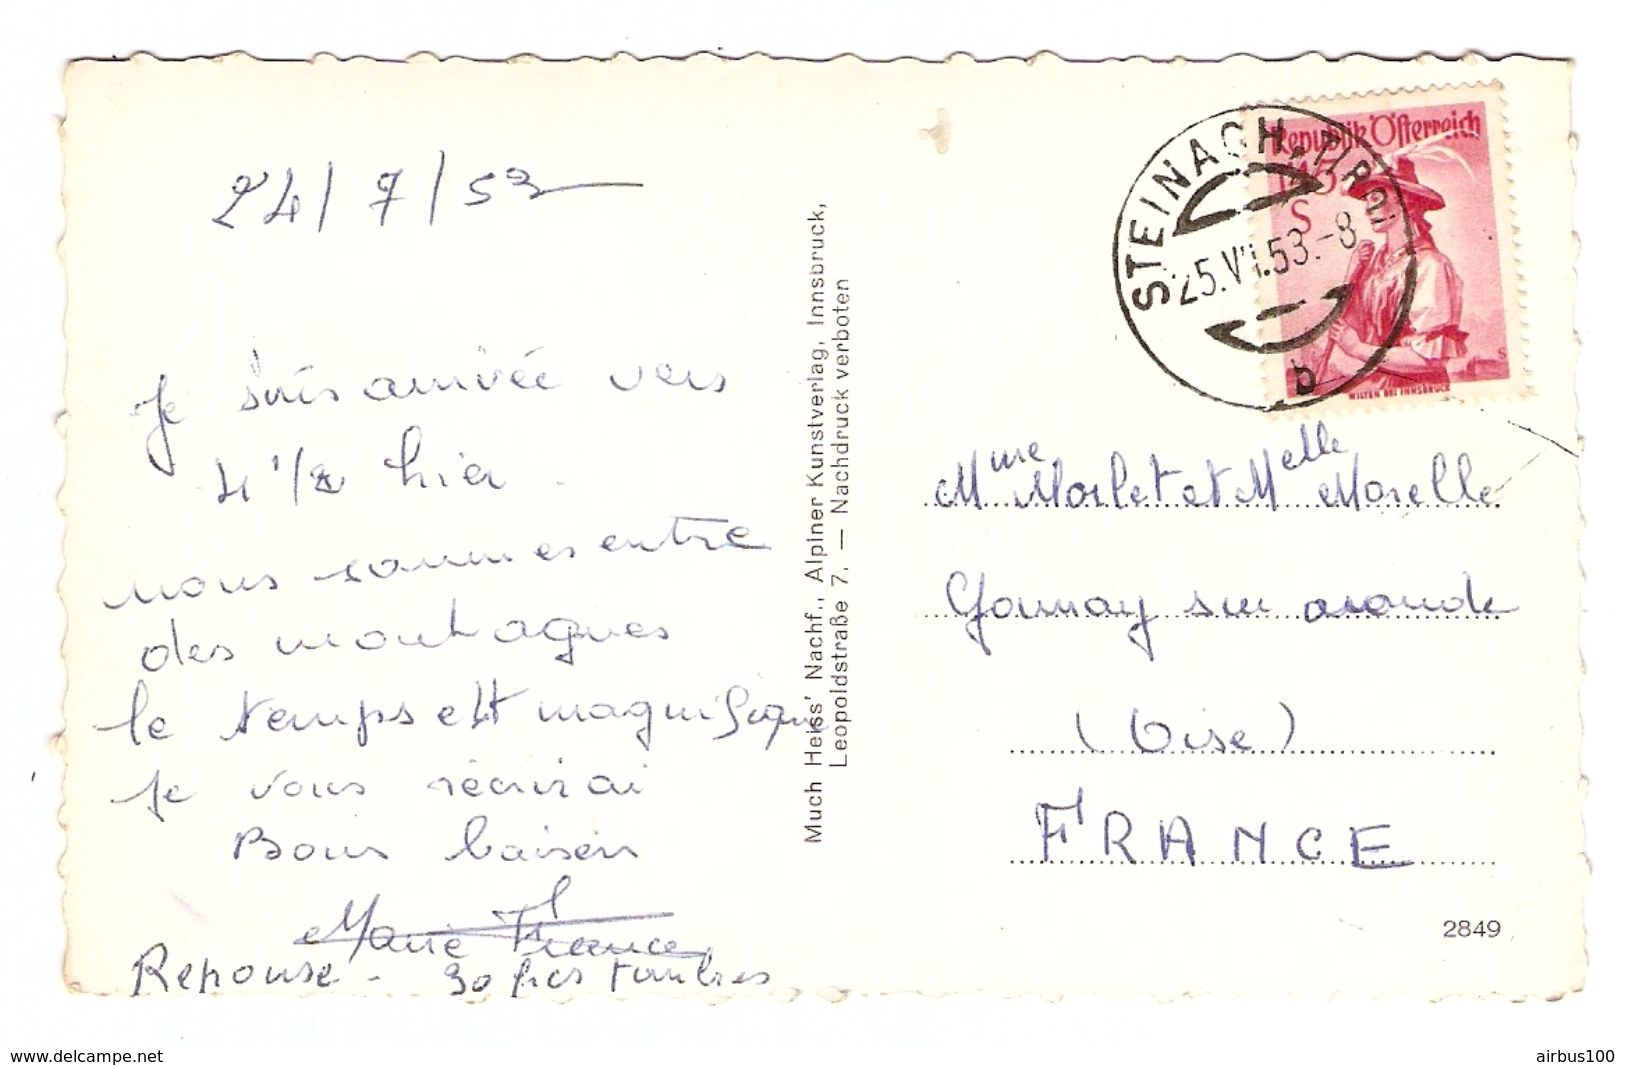 24/7/53
Je suis arrivée vers
4 1/2 hier.
nous sommes entre
des montagnes
le temps est magnifique
je vous récrirai
Bons baisers
Marie France
Reponse - 30 frcs timbres
Much Heiss' Nachf., Alpiner Kunstverlag, Innsbruck,
Leopoldstraße 7. — Nachdruck verboten
STEINACH, TIROL
25.VII.53.-8
b
Republik Österreich
1.45
S
WILTEN BEI INNSBRUCK
Mme Morlet et Melle Morelle
Gournay sur aronde
(Oise)
FRANCE
2849
www.delcampe.net
airbus100